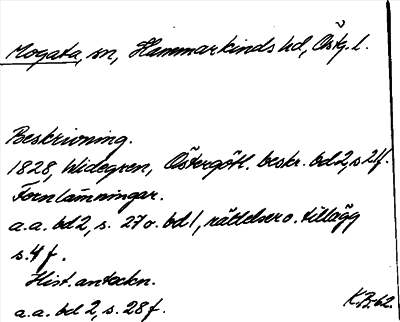 Mogata, sn, Hammarkinds hd, Östg. l.
Beskrivning.
1828, Widegren, Östergötl. beskr. bd 2, s 21 f.
Fornlämningar.
a.a. bd 2, s. 27 o. bd 1, rättelser o. tillägg
s. 4 f.
Hist. anteckn.
a.a. bd 2, s. 28 f.
K.B-62.